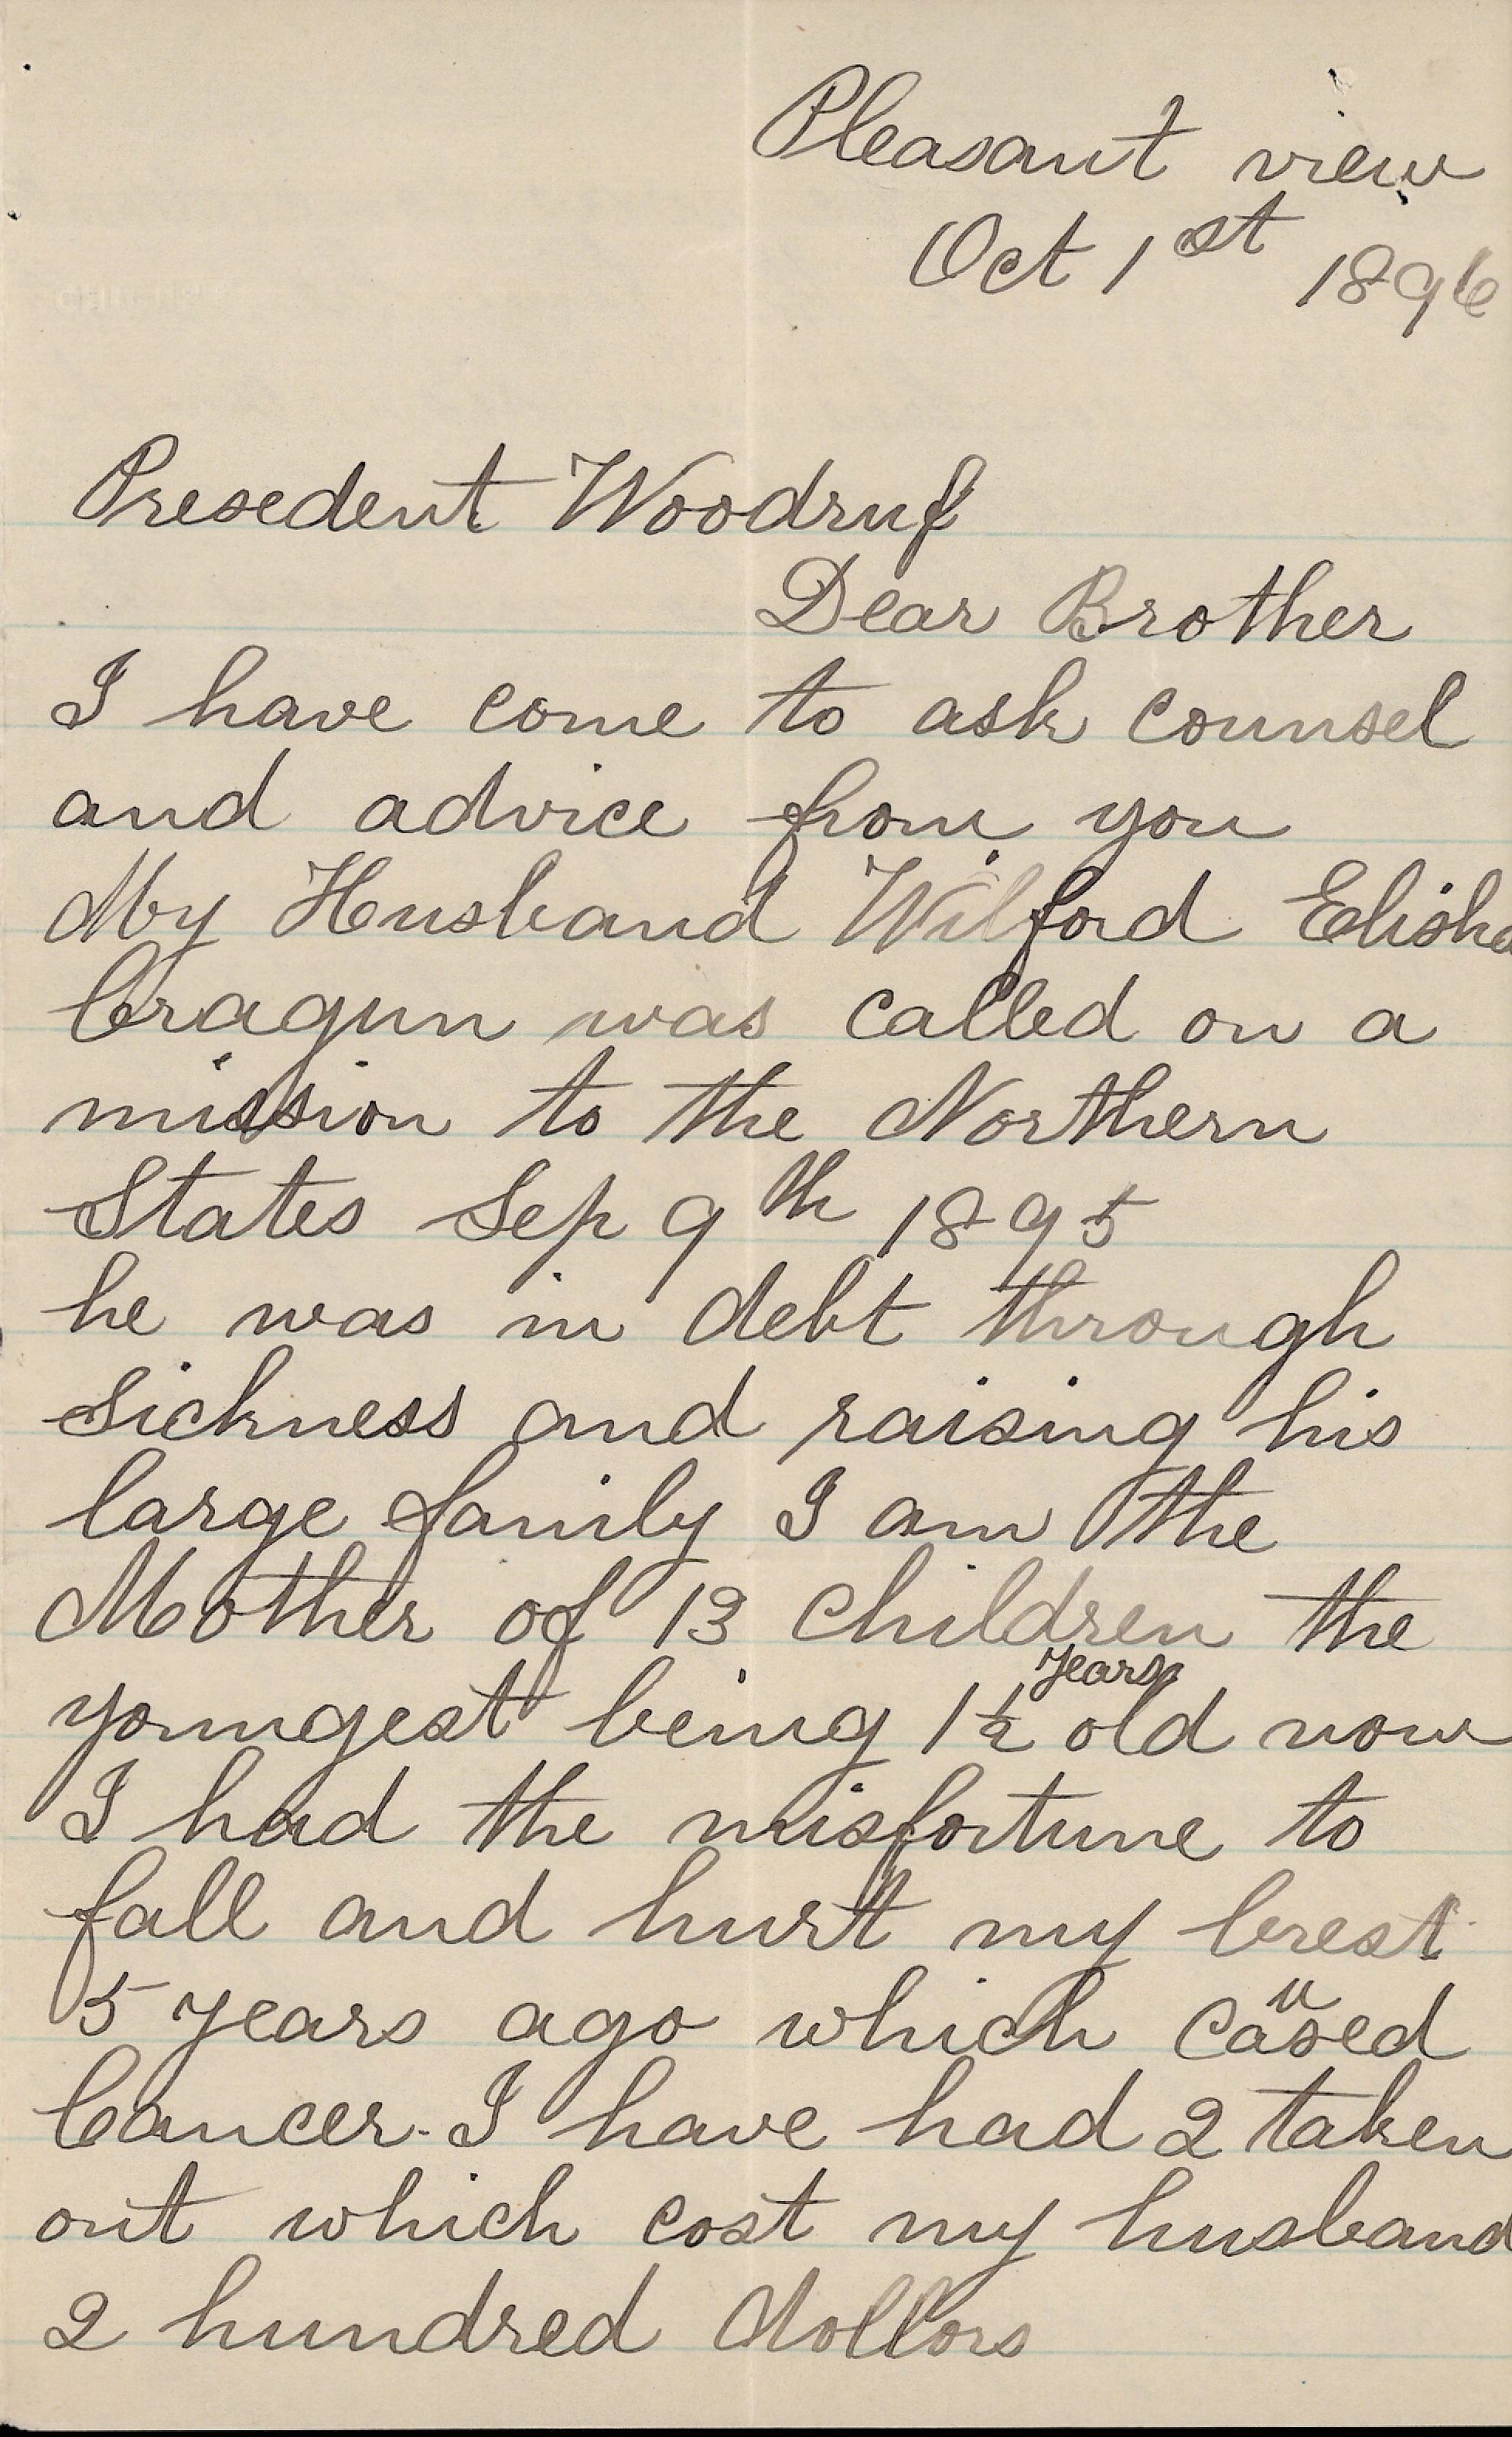 Pleasant view
Oct 1st 1896
Presedent Woodruf
Dear Brother
I have come to ask counsel
and advice from you
My Husband Wilford Elisha
Cragun was called on a
mission to the Northern
States Sep 9th 1895
he was in debt through
Sickness and raising his
large family I am the
Mother of 13 children the
youngest being 1½ years old now
I had the misfortune to
fall and hurt my brest
5 years ago which caused
Cancer. I have had 2 taken
out which cost my husband
2 hundred dollors